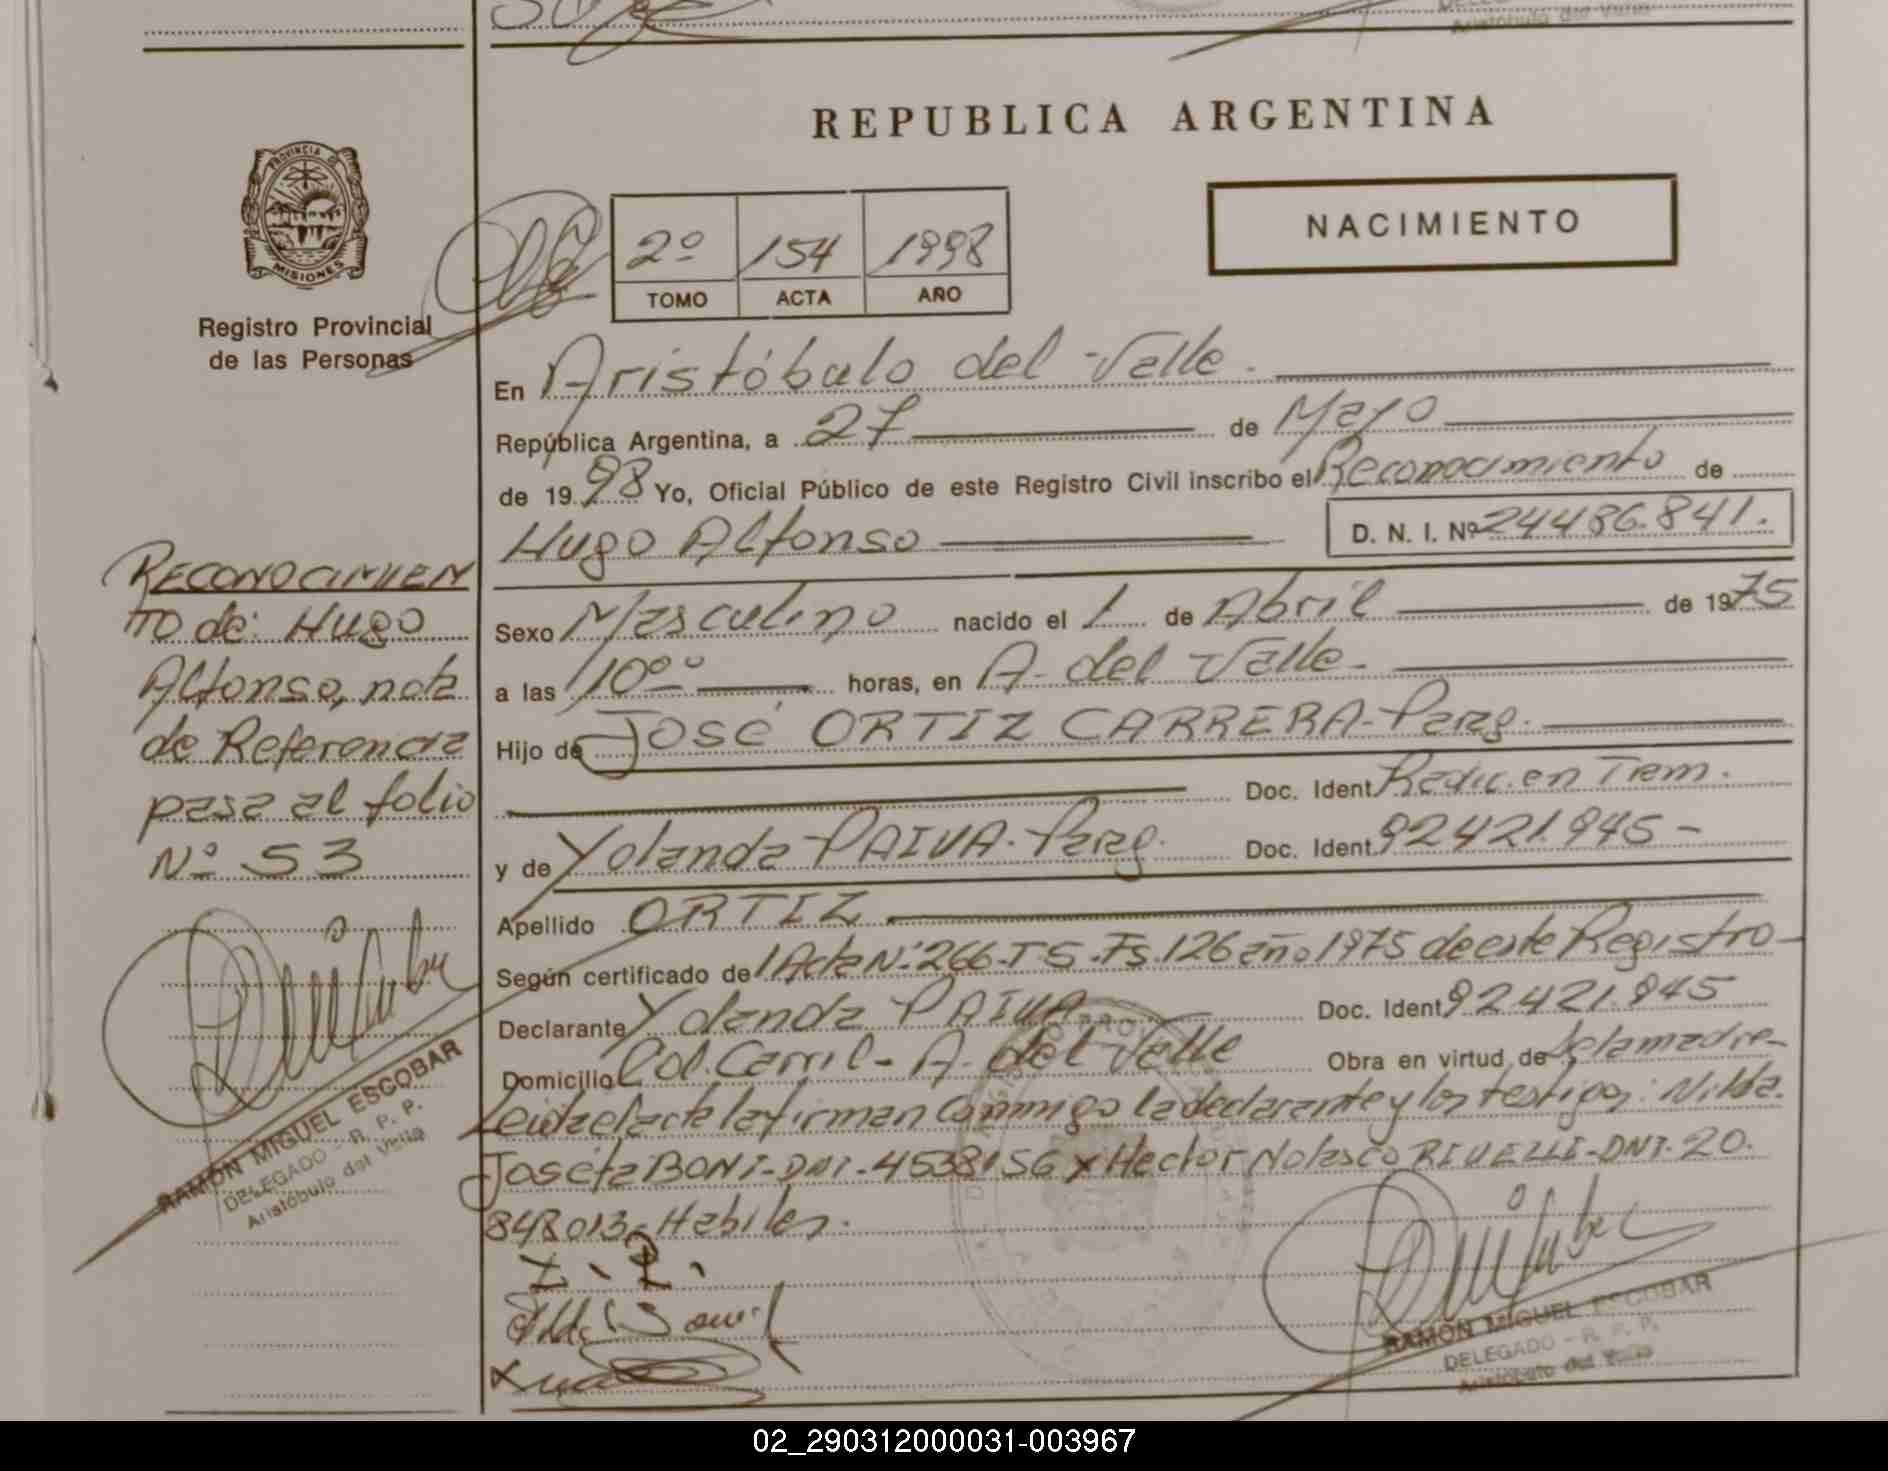 DELEGADO
Aristóbulo del Valle
REPUBLICA ARGENTINA
PROVINCIA DE
MISIONES
Registro Provincial
de las Personas
2º 154 1998
TOMO ACTA AÑO
NACIMIENTO
En Aristóbulo del Valle.
República Argentina, a 27 de Mayo
de 1998 Yo, Oficial Público de este Registro Civil inscribo el Reconocimiento de
Hugo Alfonso D. N. I. Nº 24486.841.
Sexo Masculino nacido el 1 de Abril de 1975
a las 10ºº horas, en A. del Valle.
Hijo de José ORTIZ CARRERA-Parag.
Doc. Ident. Radic. en Tram.
y de Yolanda PAIVA. Parag. Doc. Ident. 92421.945-
Apellido ORTIZ
Según certificado de Acta Nº 266-T5-Fs.126 año 1975 de este Registro-
Declarante Yolanda PAIVA Doc. Ident 92421.945
Domicilio Col. Carril- A. del Valle Obra en virtud de de la madre-
Leida el acta la firman conmigo la declarante y los testigos: Nilda
Joséfa BONI-DNI-4538156 y Hector Nolasco RIVELLI-DNI-20.
848013- Habiles.
RAMON MIGUEL ESCOBAR
DELEGADO - R. P. P.
Aristóbulo del Valle
RECONOCIMIEN
TO de: Hugo
Alfonso, nota
de Referencia
pasa al folio
Nº 53
RAMON MIGUEL ESCOBAR
DELEGADO - R. P. P.
Aristóbulo del Valle
02_290312000031-003967